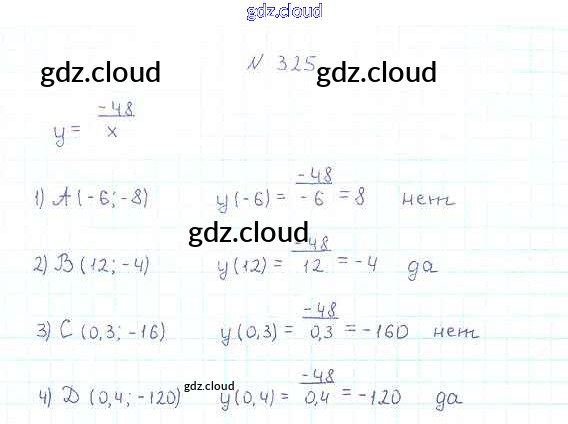 gdz.cloud
N 325
gdz.cloud gdz.cloud
y = -48/x
1) A (-6; -8) y(-6) = -48/-6 = 8 нет
gdz.cloud
2) B (12; -4) y(12) = -48/12 = -4 да
3) C (0,3; -16) y(0,3) = -48/0,3 = -160 нет
4) D (0,4; -120) y(0,4) = -48/0,4 = -120 да
gdz.cloud